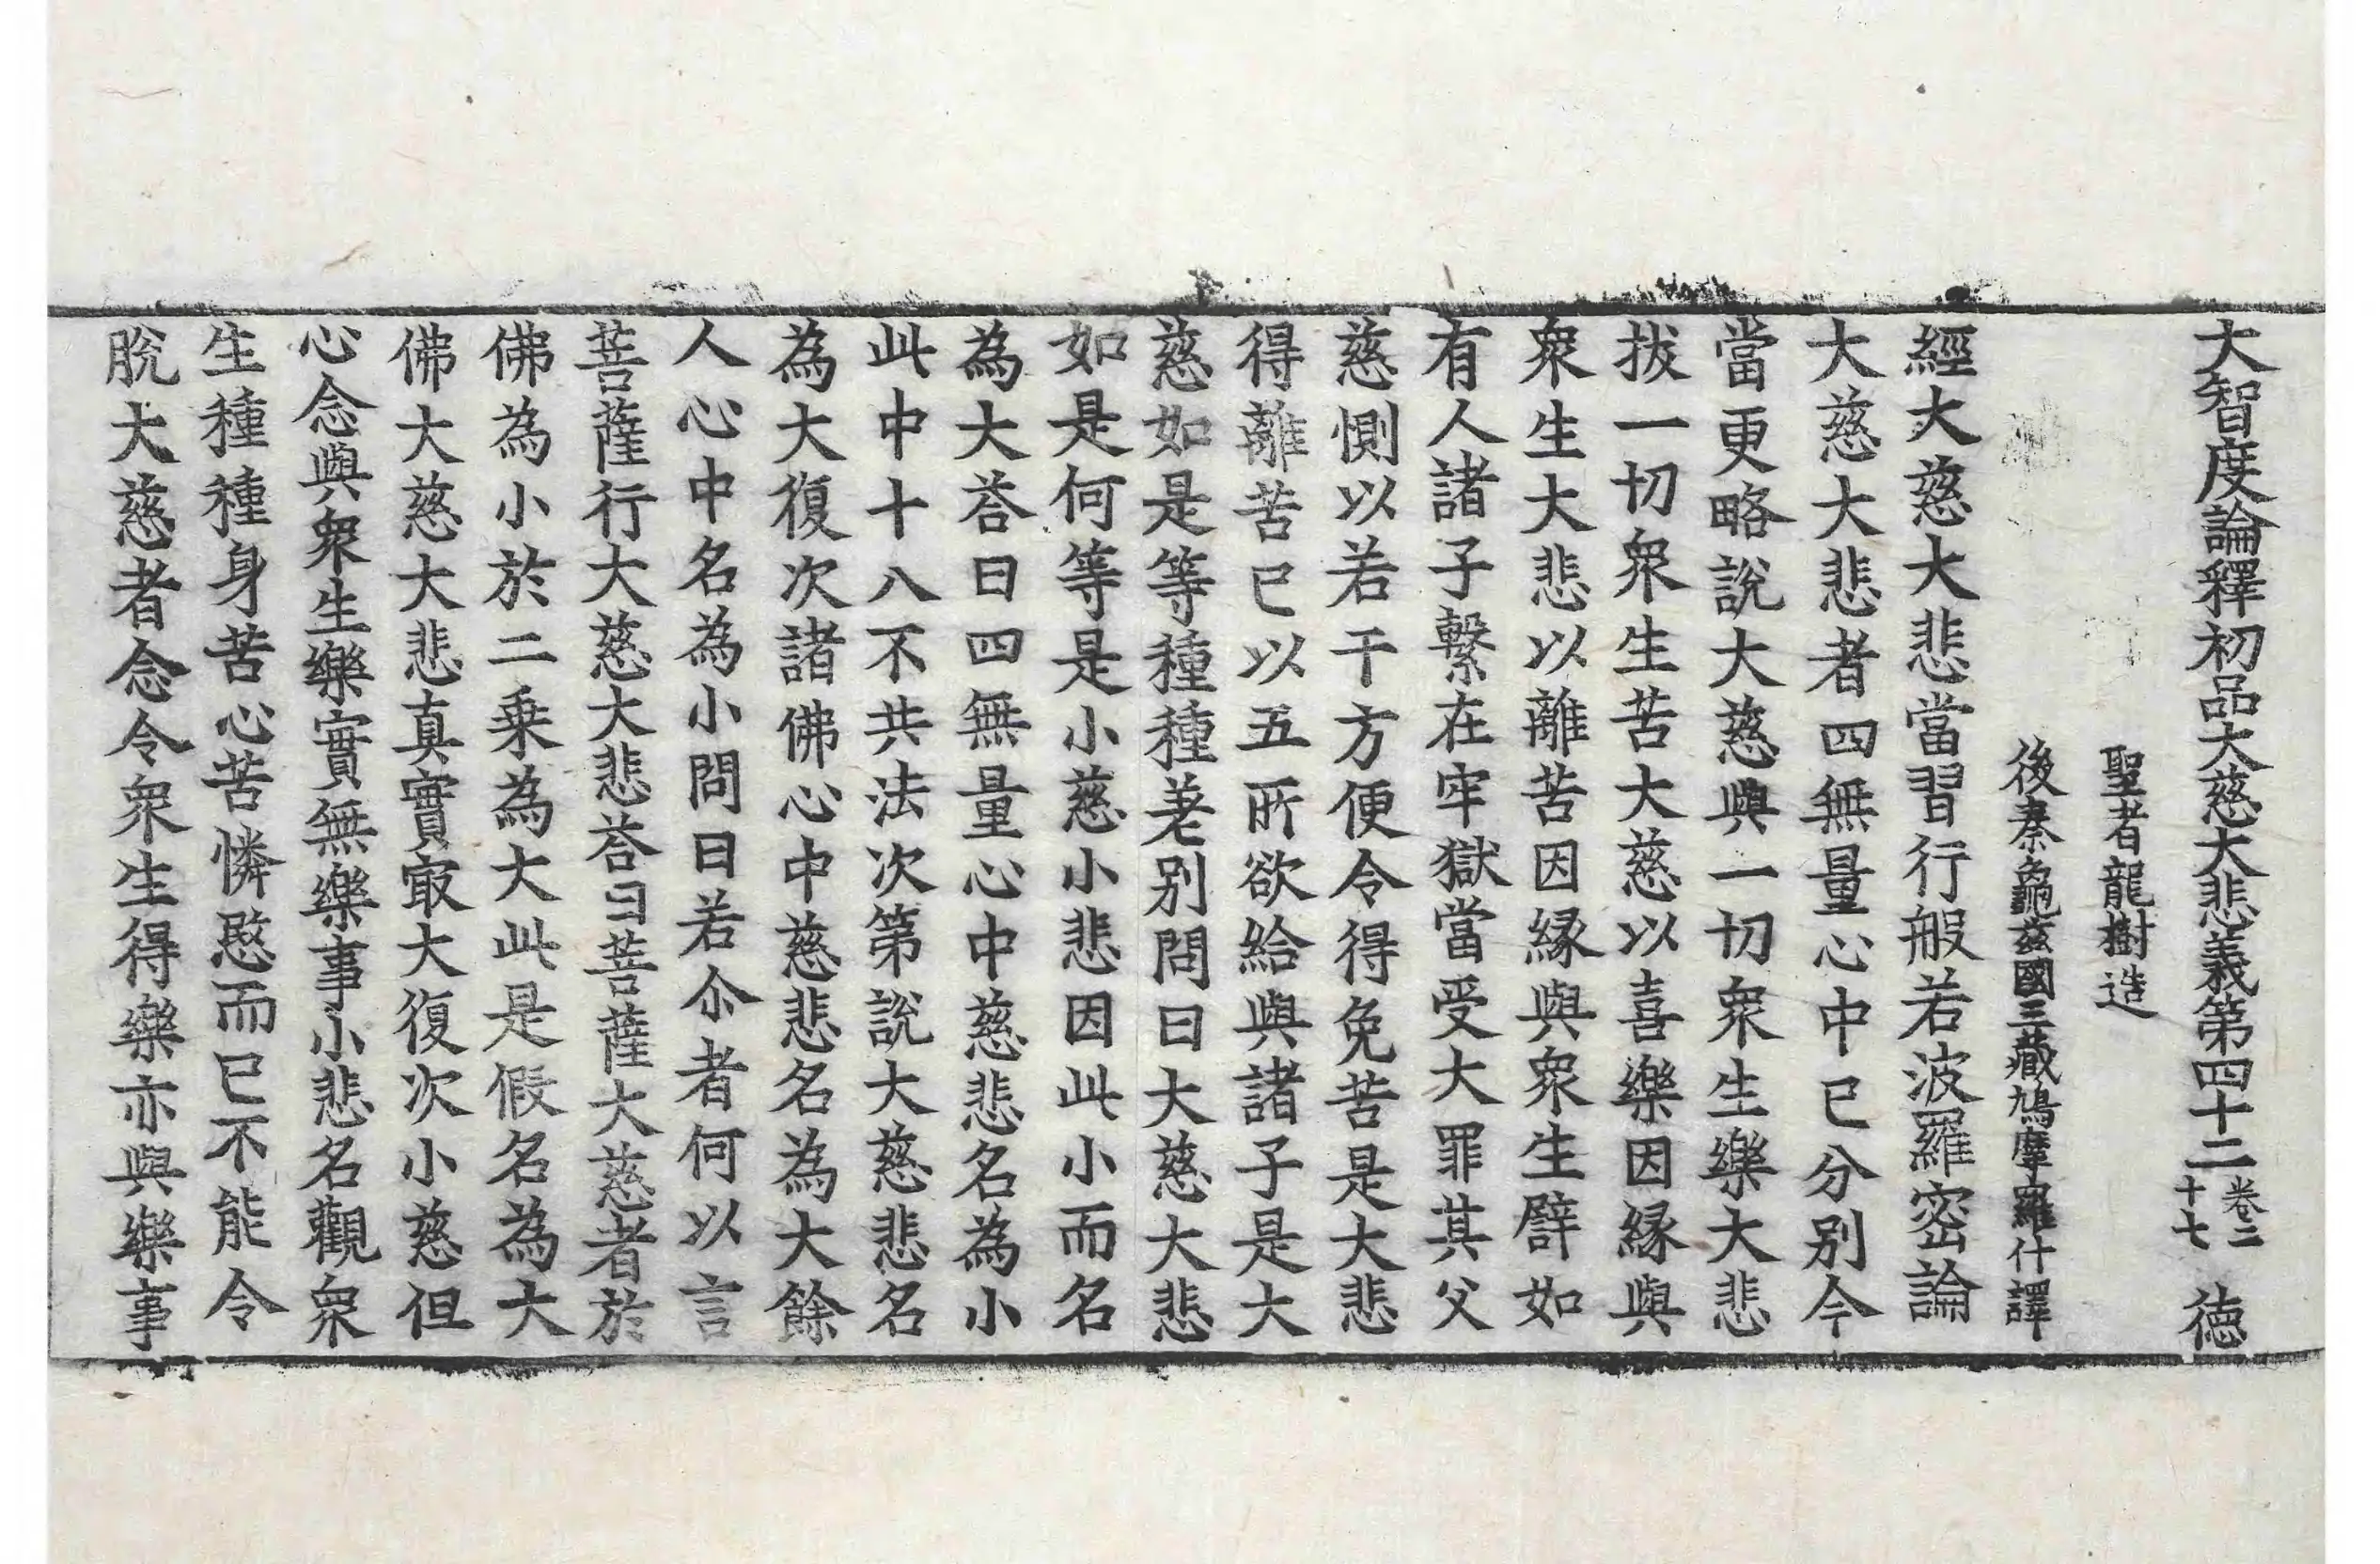 大智度論釋初品大慈大悲義第四十二 卷二十七 德
聖者龍樹造
後秦龜茲國三藏鳩摩羅什譯
經大慈大悲當習行般若波羅蜜論
大慈大悲者四無量心中已分別今
當更略說大慈與一切衆生樂大悲
拔一切衆生苦大慈以喜樂因緣與
衆生大悲以離苦因緣與衆生譬如
有人諸子繫在牢獄當受大罪其父
慈惻以若干方便令得免苦是大悲
得離苦已以五所欲給與諸子是大
慈如是等種種差別問曰大慈大悲
如是何等是小慈小悲因此小而名
為大荅曰四無量心中慈悲名為小
此中十八不共法次第說大慈悲名
為大復次諸佛心中慈悲名為大餘
人心中名為小問曰若尒者何以言
菩薩行大慈大悲荅曰菩薩大慈者於
佛為小於二乗為大此是假名為大
佛大慈大悲真實㝡大復次小慈但
心念與衆生樂實無樂事小悲名觀衆
生種種身苦心苦憐愍而已不能令
脫大慈者念令衆生得樂亦與樂事